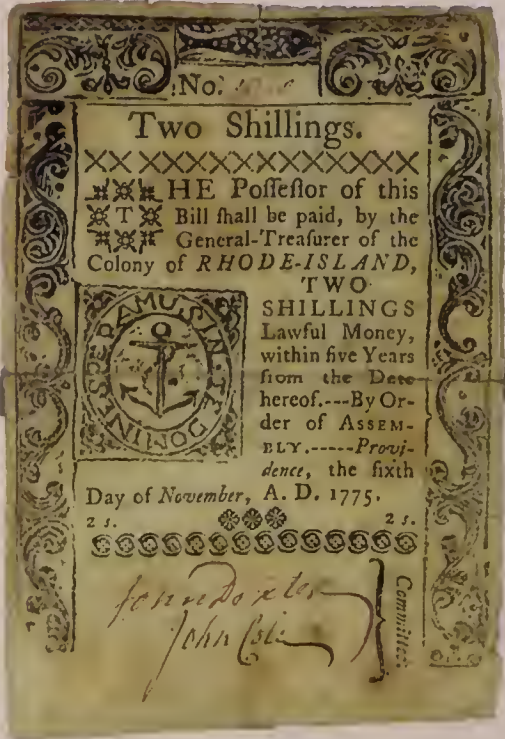 No.
Two Shillings.
THE Poſſeſſor of this
Bill ſhall be paid, by the
General-Treaſurer of the
Colony of RHODE-ISLAND,
TWO
SHILLINGS
Lawful Money,
within five Years
from the Date
hereof.---By Or-
der of ASSEM-
BLY.-----Provi-
dence, the ſixth
Day of November, A. D. 1775.
IN TE DOMINE SPERAMUS
2 s. 2 s.
John Dexter
John Cole
Committee.